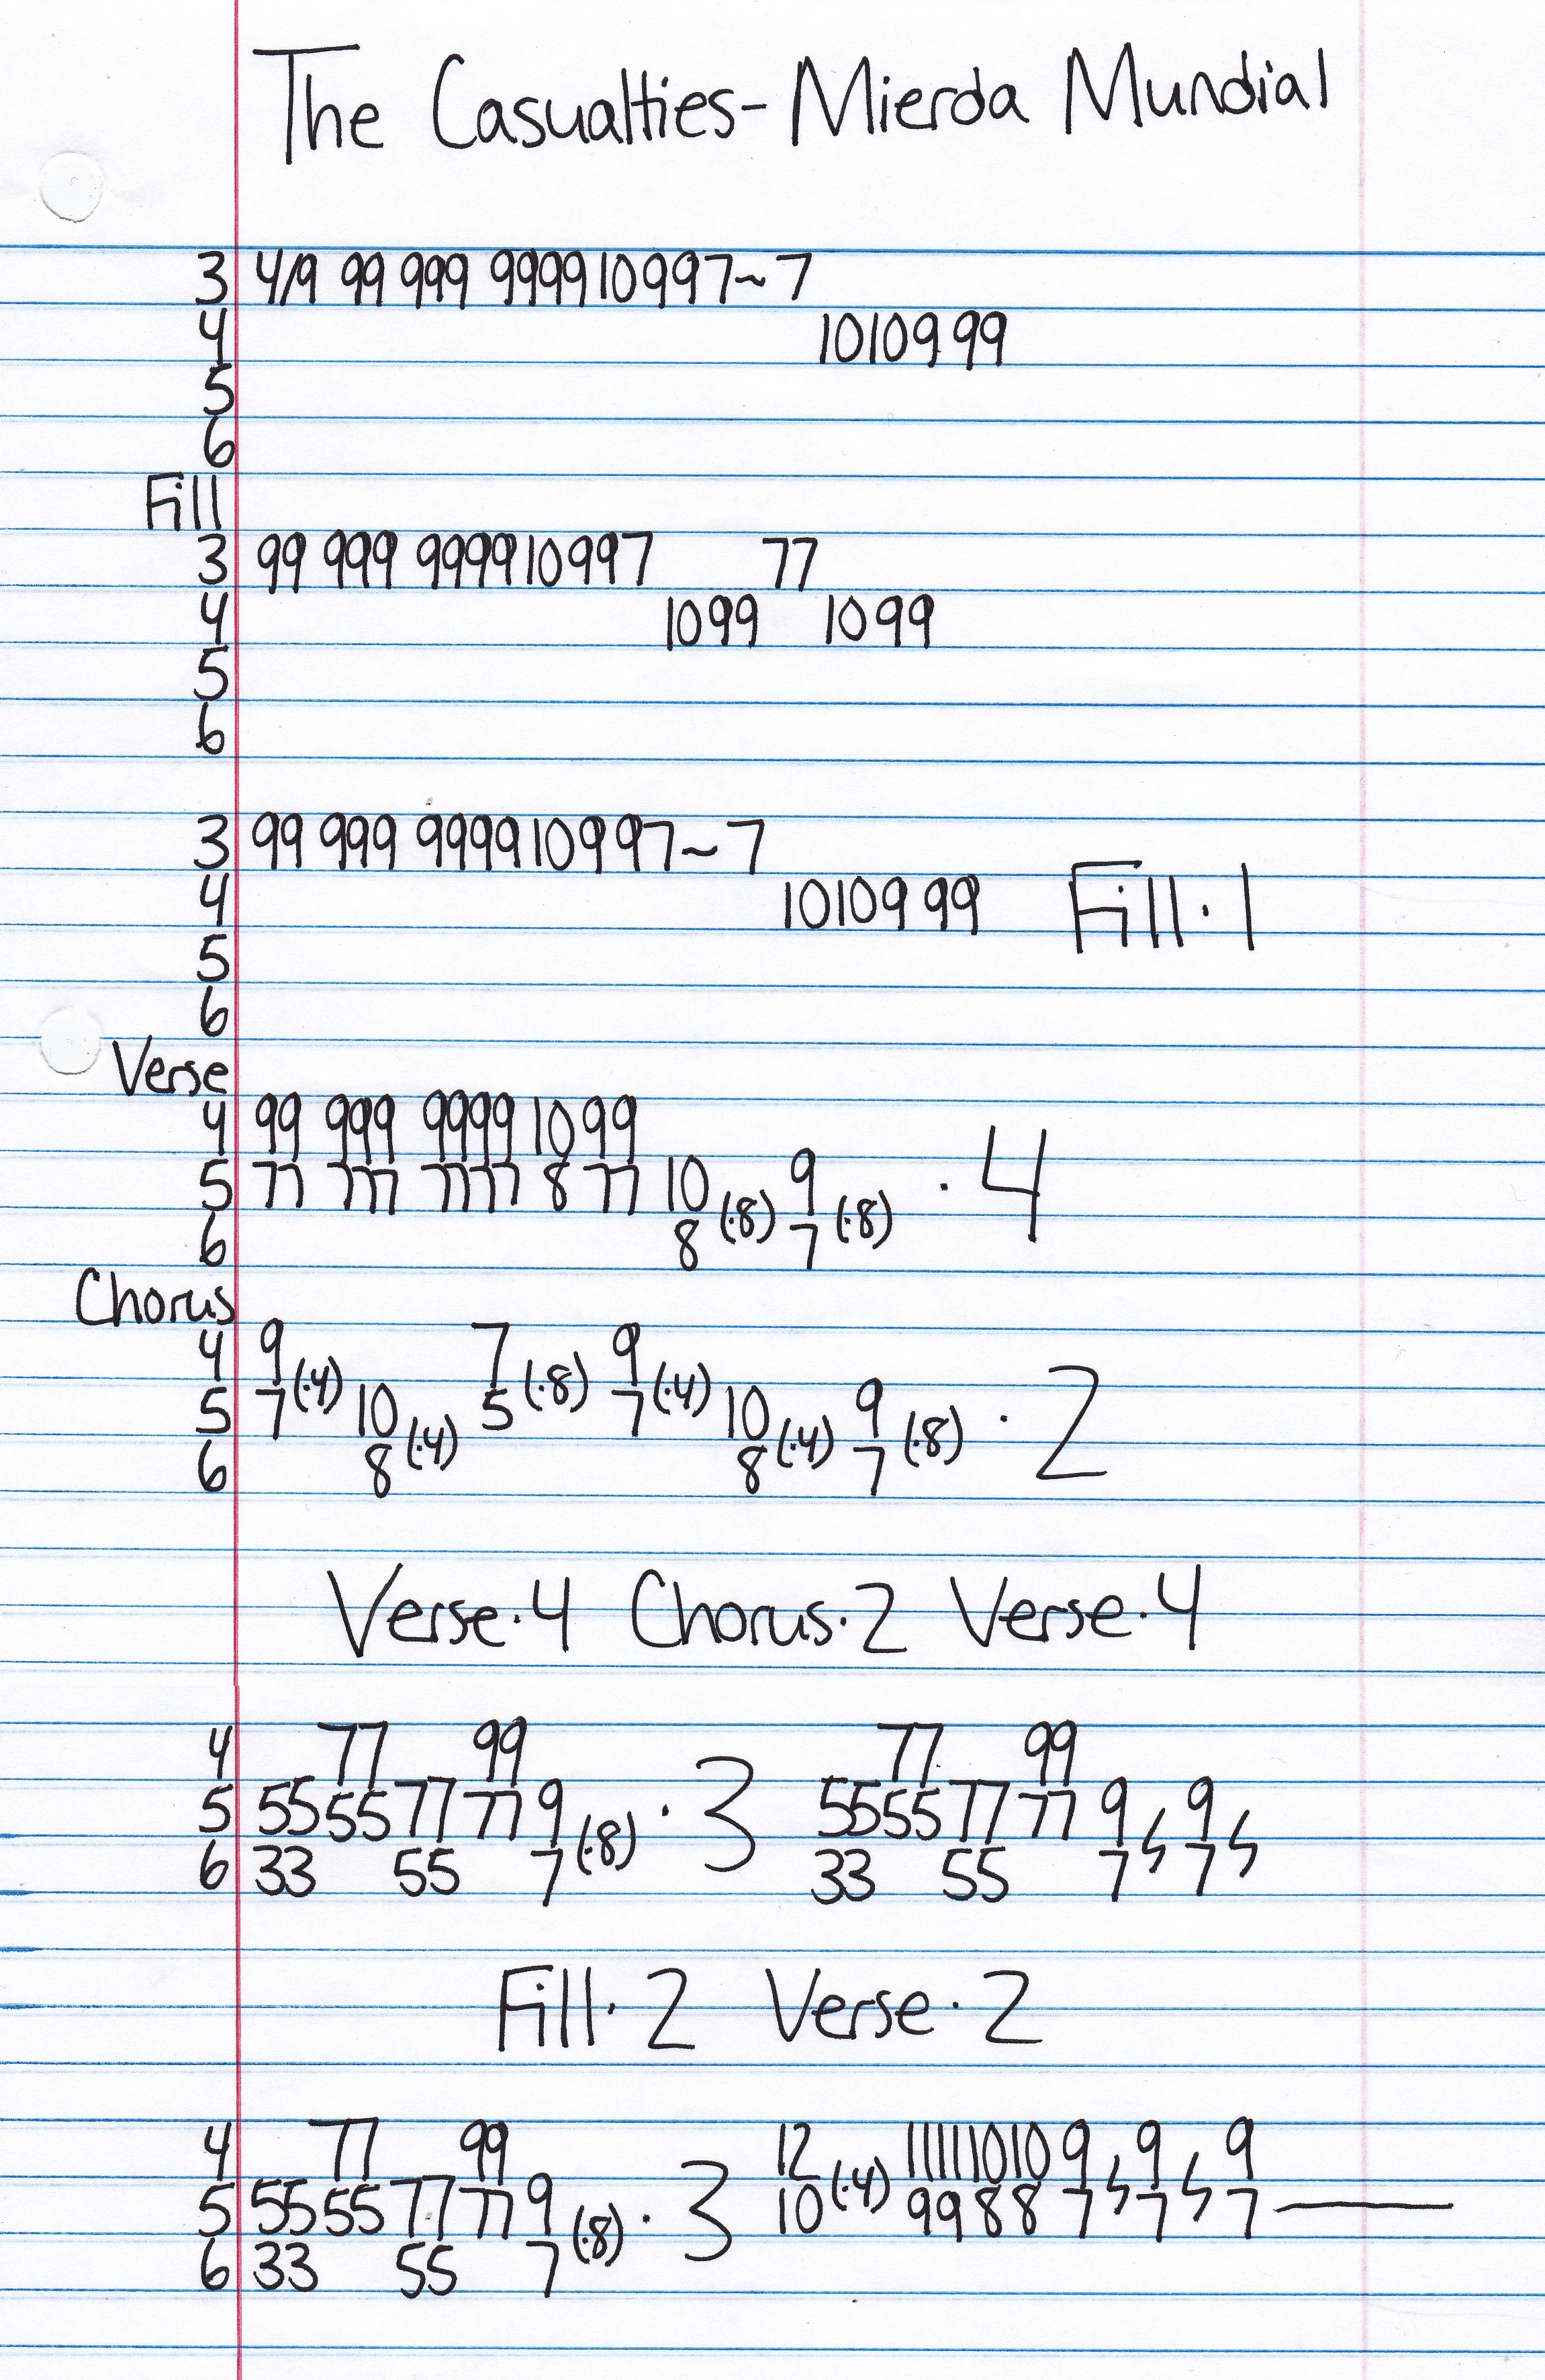 The Casualties- Mierda Mundial
3 4/9 99 999 9999 10 9 9 7~7
4 10 10 9 99
5
6
Fill
3 99 999 9999 10 9 9 7 77
4 10 99 10 99
5
6
3 99 999 9999 10 9 9 7~7
4 10 10 9 99 Fill·1
5
6
Verse
4 99 999 9999 10 99
5 77 777 7777 8 77 10 9 ·4
6 8 (·8) 7 (·8)
Chorus
4 9 7 9
5 7 (·4) 10 5 (·8) 7 (·4) 10 9 ·2
6 8 (·4) 8 (·4) 7 (·8)
Verse·4 Chorus·2 Verse·4
4 77 99 77 99
5 55 55 77 77 9 ·3 55 55 77 77 9 9
6 33 55 7 (·8) 33 55 7 7
Fill·2 Verse·2
4 77 99 12 11 11 10 10 9 9 9
5 55 55 77 77 9 ·3 10 (·4) 9 9 8 8 7 7 7
6 33 55 7 (·8)